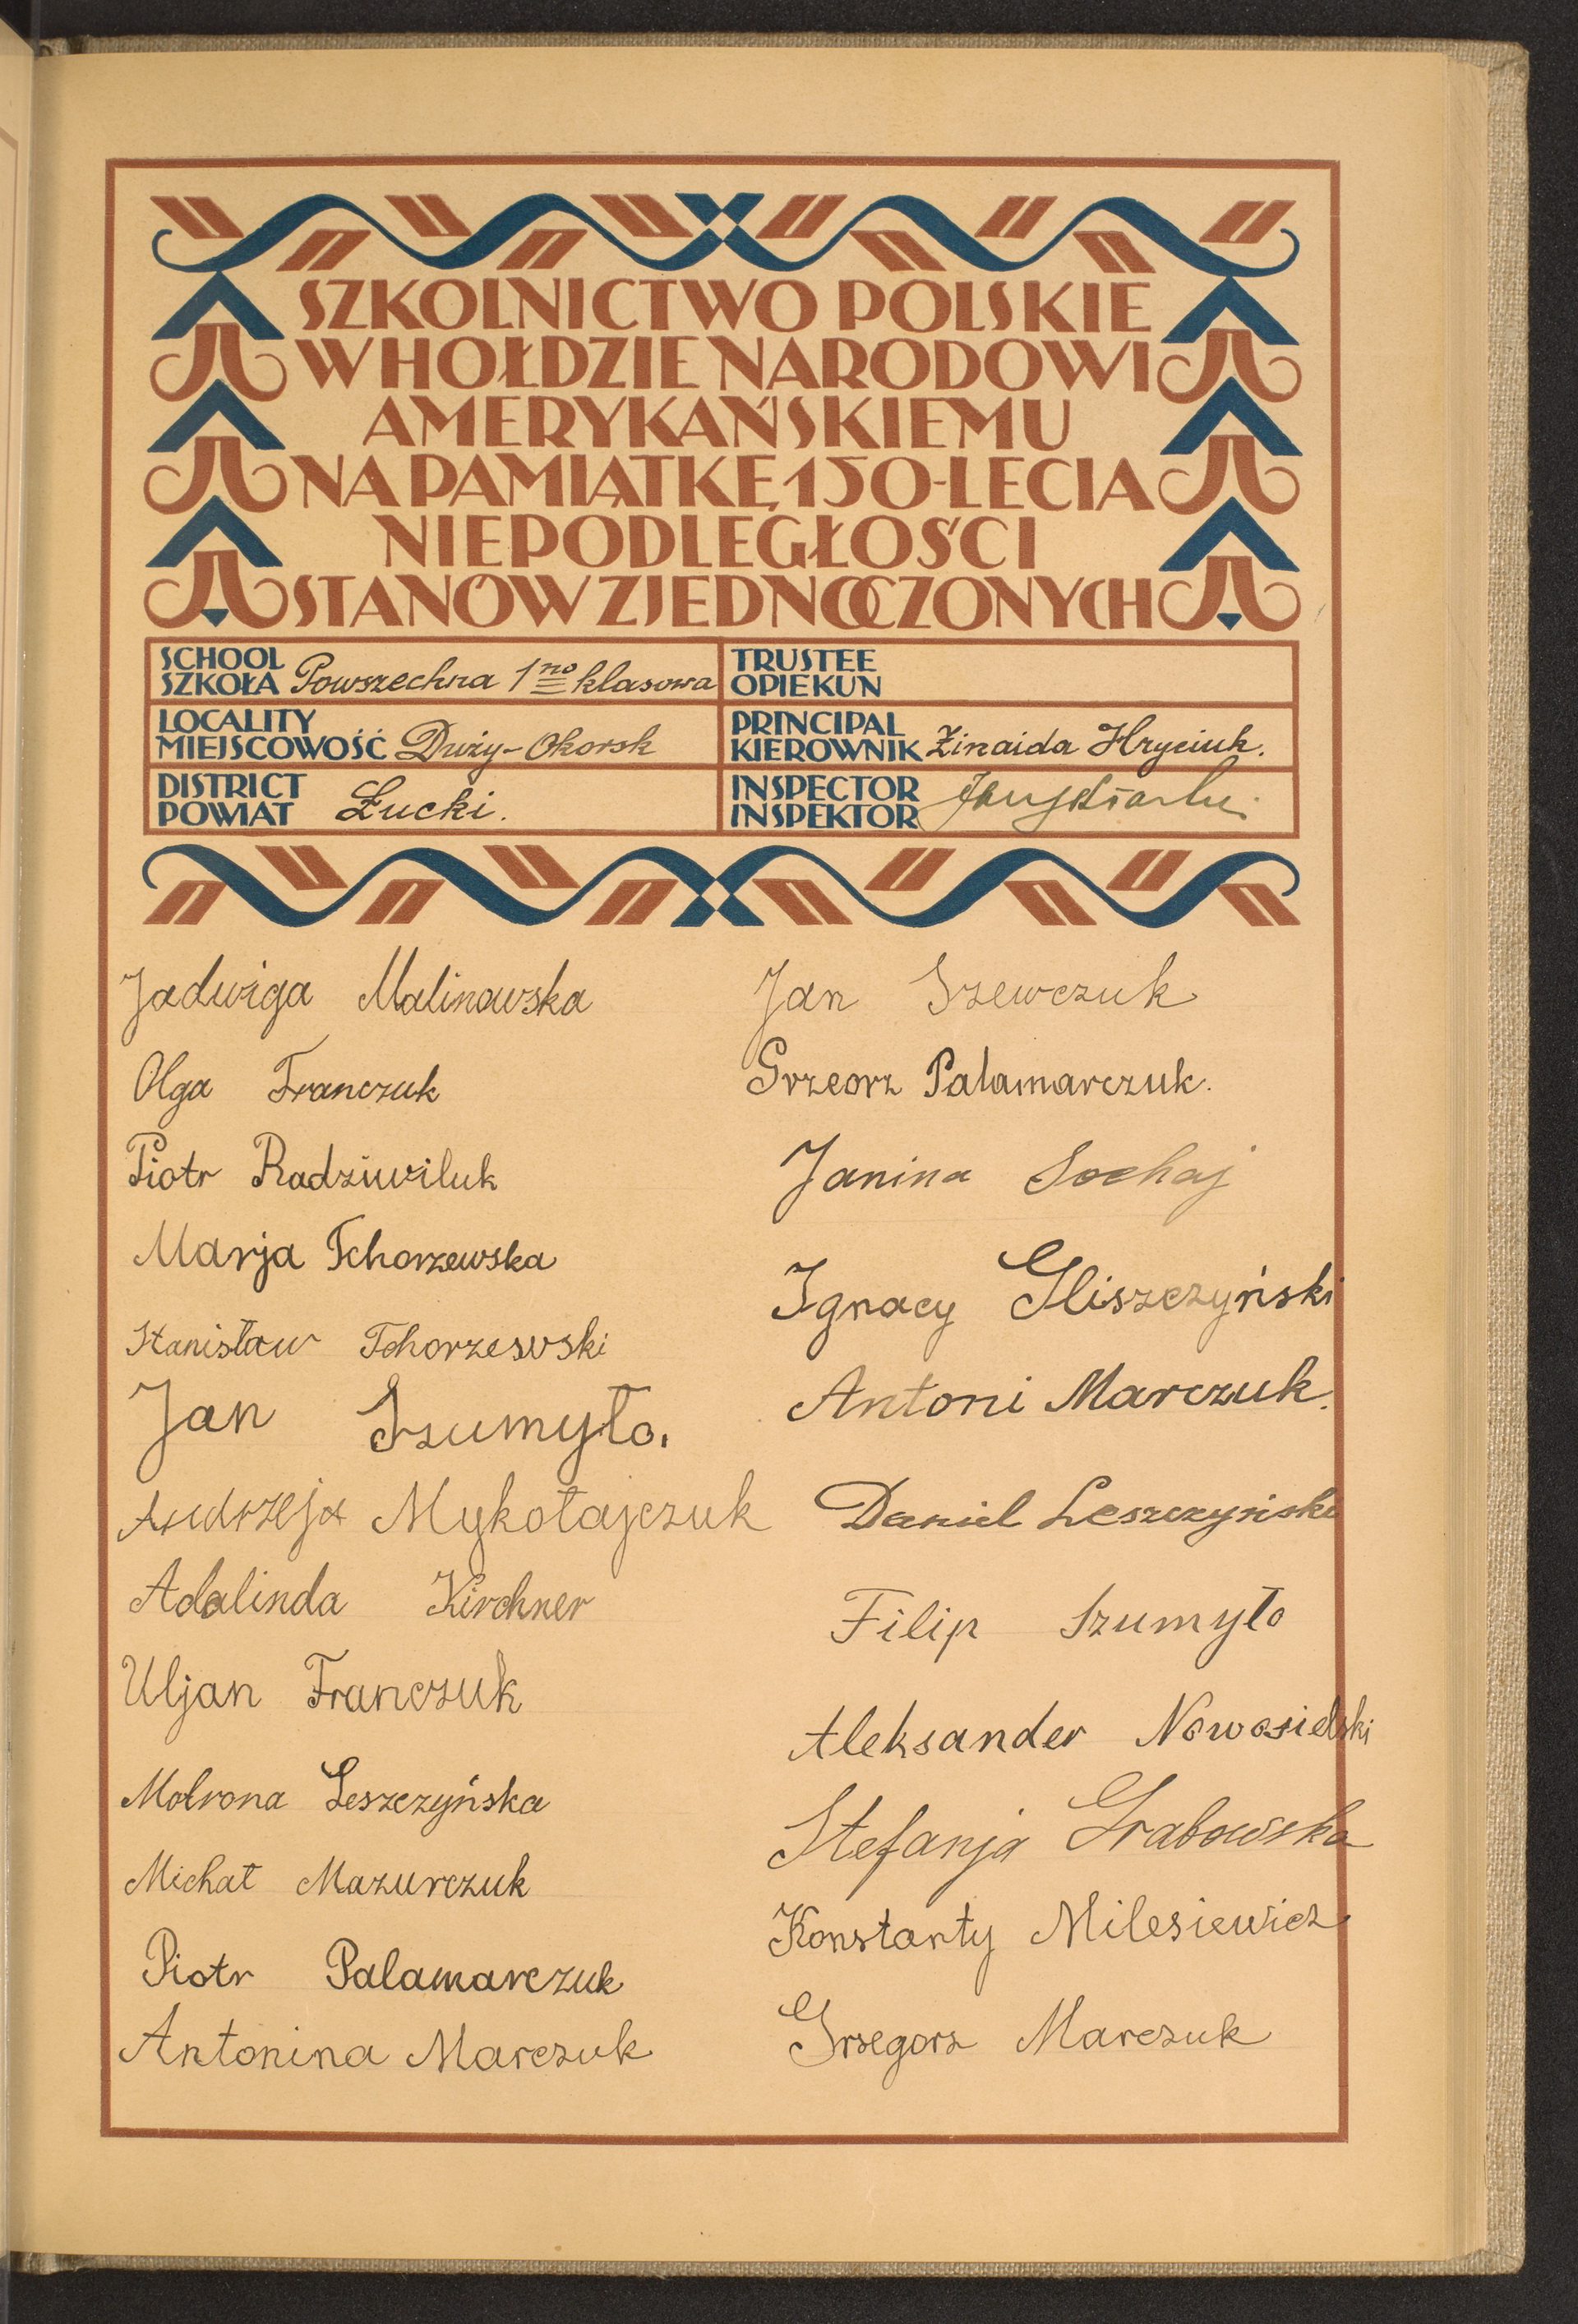 SZKOLNICTWO POLSKIE
W HOŁDZIE NARODOWI
AMERYKAŃSKIEMU
NA PAMIĄTKĘ 150-LECIA
NIEPODLEGŁOŚCI
STANÓW ZJEDNOCZONYCH
SCHOOL
SZKOŁA Powszechna 1no klasowa
TRUSTEE
OPIEKUN
LOCALITY
MIEJSCOWOŚĆ Duży-Okorsk
PRINCIPAL
KIEROWNIK Zinaida Hryciuk.
DISTRICT
POWIAT Łucki.
INSPECTOR
INSPEKTOR
Jadwiga Malinowska
Olga Franczuk
Piotr Radziwiluk
Marja Tchorzewska
Stanisław Tchorzewski
Jan Szumyło.
Andrzeja Mykołajczuk
Adalinda Kirchner
Uljan Franczuk
Motrona Leszczyńska
Michał Mazurczuk
Piotr Palamarczuk
Antonina Marczuk
Jan Szewczuk
Grzeorz Palamarczuk.
Janina Sochaj
Ignacy Gliszczyński
Antoni Marczuk.
Daniel Leszczyński
Filip Szumyło
Aleksander Nowosielski
Stefanja Grabowska
Konstanty Milesiewicz
Grzegorz Marczuk